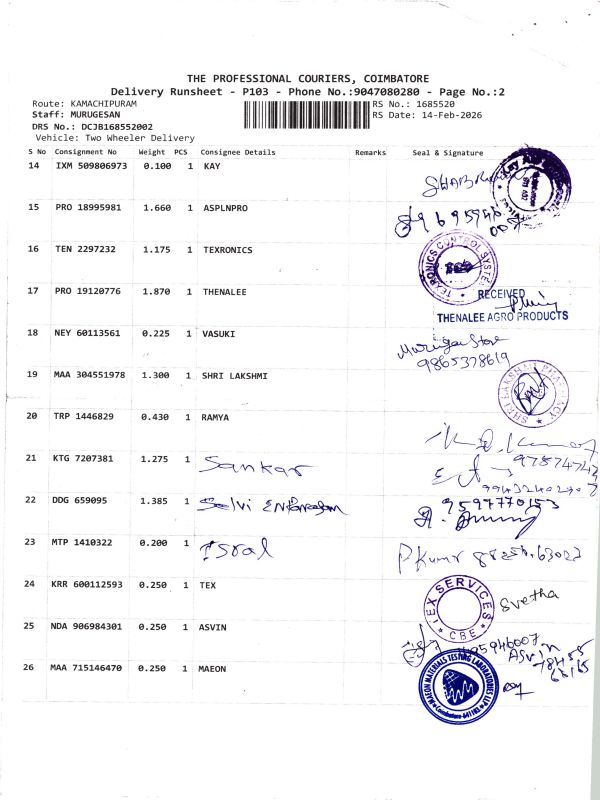 THE PROFESSIONAL COURIERS, COIMBATORE
Delivery Runsheet - P103 - Phone No.:9047080280 - Page No.:2
Route: KAMACHIPURAM RS No.: 1685520
Staff: MURUGESAN RS Date: 14-Feb-2026
DRS No.: DCJB168552002
Vehicle: Two Wheeler Delivery
S No Consignment No Weight PCS Consignee Details Remarks Seal & Signature
14 IXM 509806973 0.100 1 KAY
15 PRO 18995981 1.660 1 ASPLNPRO
16 TEN 2297232 1.175 1 TEXRONICS
TEXRONICS CONTROL SYSTEM
17 PRO 19120776 1.870 1 THENALEE
RECEIVED
THENALEE AGRO PRODUCTS
18 NEY 60113561 0.225 1 VASUKI
Murugan Store
9865378619
19 MAA 304551978 1.300 1 SHRI LAKSHMI
SHRI LAKSHMI PHARMACY
20 TRP 1446829 0.430 1 RAMYA
21 KTG 7207381 1.275 1 Sankar
22 DDG 659095 1.385 1 Selvi
9597770153
23 MTP 1410322 0.200 1 Isral
P Kumr
24 KRR 600112593 0.250 1 TEX
TEX SERVICES CBE Svetha
25 NDA 906984301 0.250 1 ASVIN
ASVIN
26 MAA 715146470 0.250 1 MAEON
MAEON MATERIALS TESTING LABORATORIES LLP